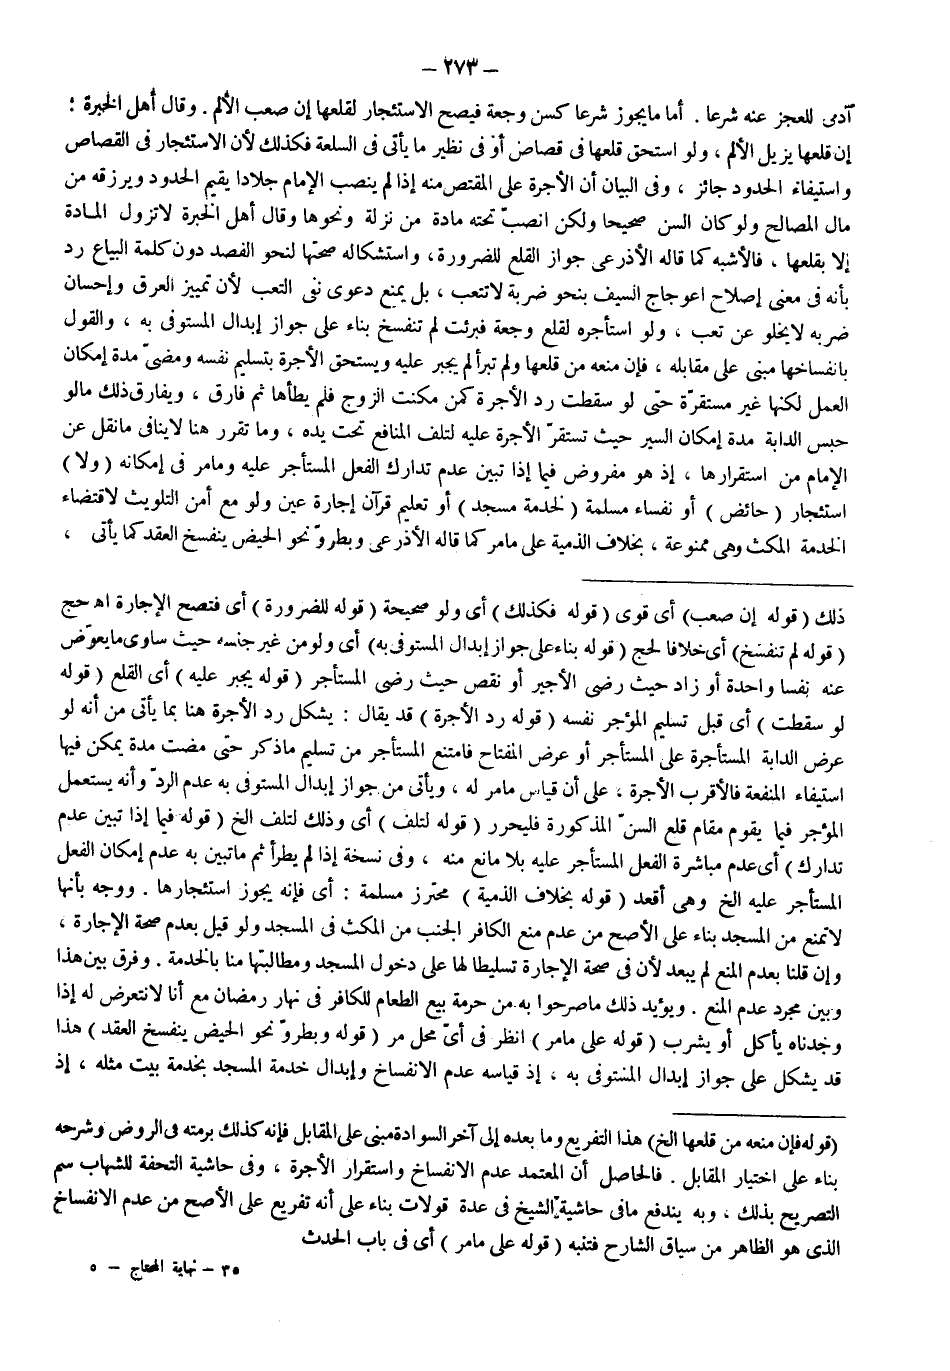 – ٢٧٣ –
آدمى للعجز عنه شرعا . أما مايجوز شرعا كسن وجعة فيصح الاستئجار لقلعها إن صعب الألم . وقال أهل الخبرة :
إن قلعها يزيل الألم ، ولو استحق قلعها فى قصاص أو فى نظير ما يأتى فى السلعة فكذلك لأن الاستئجار فى القصاص
واستيفاء الحدود جائز ، وفى البيان أن الأجرة على المقتص منه إذا لم ينصب الإمام جلادا يقيم الحدود ويرزقه من
مال المصالح ولو كان السن صحيحا ولكن انصبّ تحته مادة من نزلة ونحوها وقال أهل الخبرة لاتزول المادة
إلا بقلعها ، فالأشبه كما قاله الأذرعى جواز القلع للضرورة ، واستشكاله صحتها لنحو الفصد دون كلمة البياع رد
بأنه فى معنى إصلاح اعوجاج السيف بنحو ضربة لاتتعب ، بل يمنع دعوى نفى التعب لأن تمييز العرق وإحسان
ضربه لايخلو عن تعب ، ولو استأجره لقلع وجعة فبرئت لم تنفسخ بناء على جواز إبدال المستوفى به ، والقول
بانفساخها مبنى على مقابله ، فإن منعه من قلعها ولم تبرأ لم يجبر عليه ويستحق الأجرة بتسليم نفسه ومضىّ مدة إمكان
العمل لكنها غير مستقرّة حتى لو سقطت رد الأجرة كمن مكنت الزوج فلم يطأها ثم فارق ، ويفارق ذلك مالو
حبس الدابة مدة إمكان السير حيث تستقرّ الأجرة عليه لتلف المنافع تحت يده ، وما تقرر هنا لاينافى مانقل عن
الإمام من استقرارها ، إذ هو مفروض فيما إذا تبين عدم تدارك الفعل المستأجر عليه ومامر فى إمكانه ( ولا )
استئجار ( حائض ) أو نفساء مسلمة ( لخدمة مسجد ) أو تعليم قرآن إجارة عين ولو مع أمن التلويث لاقتضاء
الخدمة المكث وهى ممنوعة ، بخلاف الذمية على مامر كما قاله الأذرعى وبطروّ نحو الحيض ينفسخ العقد كما يأتى ،
ذلك ( قوله إن صعب) أى قوى ( قوله فكذلك ) أى ولو صحيحة ( قوله للضرورة ) أى فتصح الإجارة اهـ حج
( قوله لم تنفسخ) أى خلافا لحج ( قوله بناء على جواز إبدال المستوفى به) أى ولو من غير جنسه حيث ساوى مايعوّض
عنه نفسا واحدة أو زاد حيث رضى الأجير أو نقص حيث رضى المستأجر ( قوله يجبر عليه ) أى القلع ( قوله
لو سقطت ) أى قبل تسليم المؤجر نفسه ( قوله رد الأجرة ) قد يقال : يشكل رد الأجرة هنا بما يأتى من أنه لو
عرض الدابة المستأجرة على المستأجر أو عرض المفتاح فامتنع المستأجر من تسليم ماذكر حتى مضت مدة يمكن فيها
استيفاء المنفعة فالأقرب الأجرة ، على أن قياس مامر له ، ويأتى من جواز إبدال المستوفى به عدم الردّ وأنه يستعمل
المؤجر فيما يقوم مقام قلع السنّ المذكورة فليحرر ( قوله لتلف ) أى وذلك لتلف الخ ( قوله فيما إذا تبين عدم
تدارك ) أى عدم مباشرة الفعل المستأجر عليه بلا مانع منه ، وفى نسخة إذا لم يطرأ ثم ماتبين به عدم إمكان الفعل
المستأجر عليه الخ وهى أقعد ( قوله بخلاف الذمية ) محترز مسلمة : أى فإنه يجوز استئجارها . ووجه بأنها
لاتمنع من المسجد بناء على الأصح من عدم منع الكافر الجنب من المكث فى المسجد ولو قيل بعدم صحة الإجارة ،
وإن قلنا بعدم المنع لم يبعد لأن فى صحة الإجارة تسليطا لها على دخول المسجد ومطالبتها منا بالخدمة . وفرق بين هذا
وبين مجرد عدم المنع . ويؤيد ذلك ماصرحوا به من حرمة بيع الطعام للكافر فى نهار رمضان مع أنا لانتعرض له إذا
وجدناه يأكل أو يشرب ( قوله على مامر ) انظر فى أىّ محل مر ( قوله وبطروّ نحو الحيض ينفسخ العقد ) هذا
قد يشكل على جواز إبدال المستوفى به ، إذ قياسه عدم الانفساخ وإبدال خدمة المسجد بخدمة بيت مثله ، إذ
(قوله فإن منعه من قلعها الخ) هذا التفريع وما بعده إلى آخر السوادة مبنى على المقابل فإنه كذلك برمته فى الروض وشرحه
بناء على اختيار المقابل . فالحاصل أن المعتمد عدم الانفساخ واستقرار الأجرة ، وفى حاشية التحفة للشهاب سم
التصريح بذلك ، وبه يندفع مافى حاشية الشيخ فى عدة قولات بناء على أنه تفريع على الأصح من عدم الانفساخ
الذى هو الظاهر من سياق الشارح فتنبه ( قوله على مامر ) أى فى باب الحدث
٣٥ – نهاية المحتاج – ٥